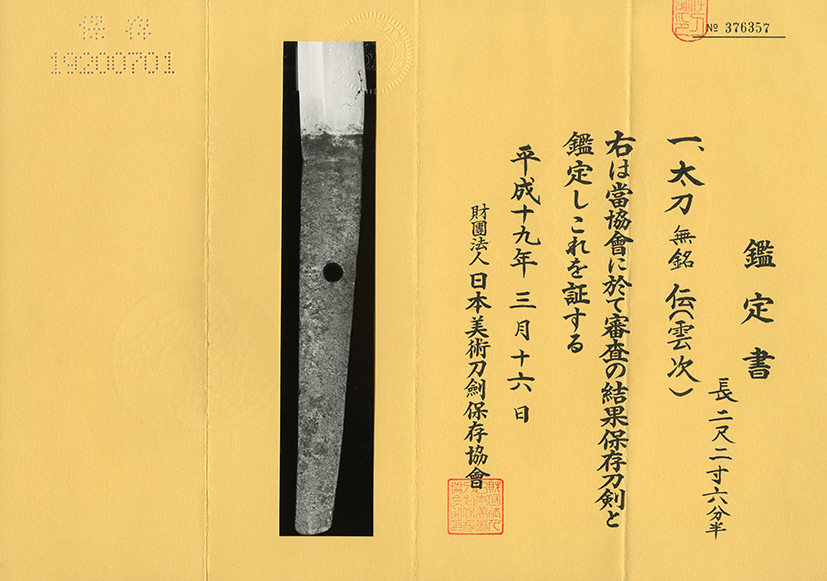 保存
19200701
№ 376357
鑑定書
一、太刀 無銘 伝(雲次)
長 二尺二寸六分半
右は當協會に於て審査の結果保存刀剣と
鑑定しこれを証する
平成十九年 三月十六日
財團法人 日本美術刀劍保存協會